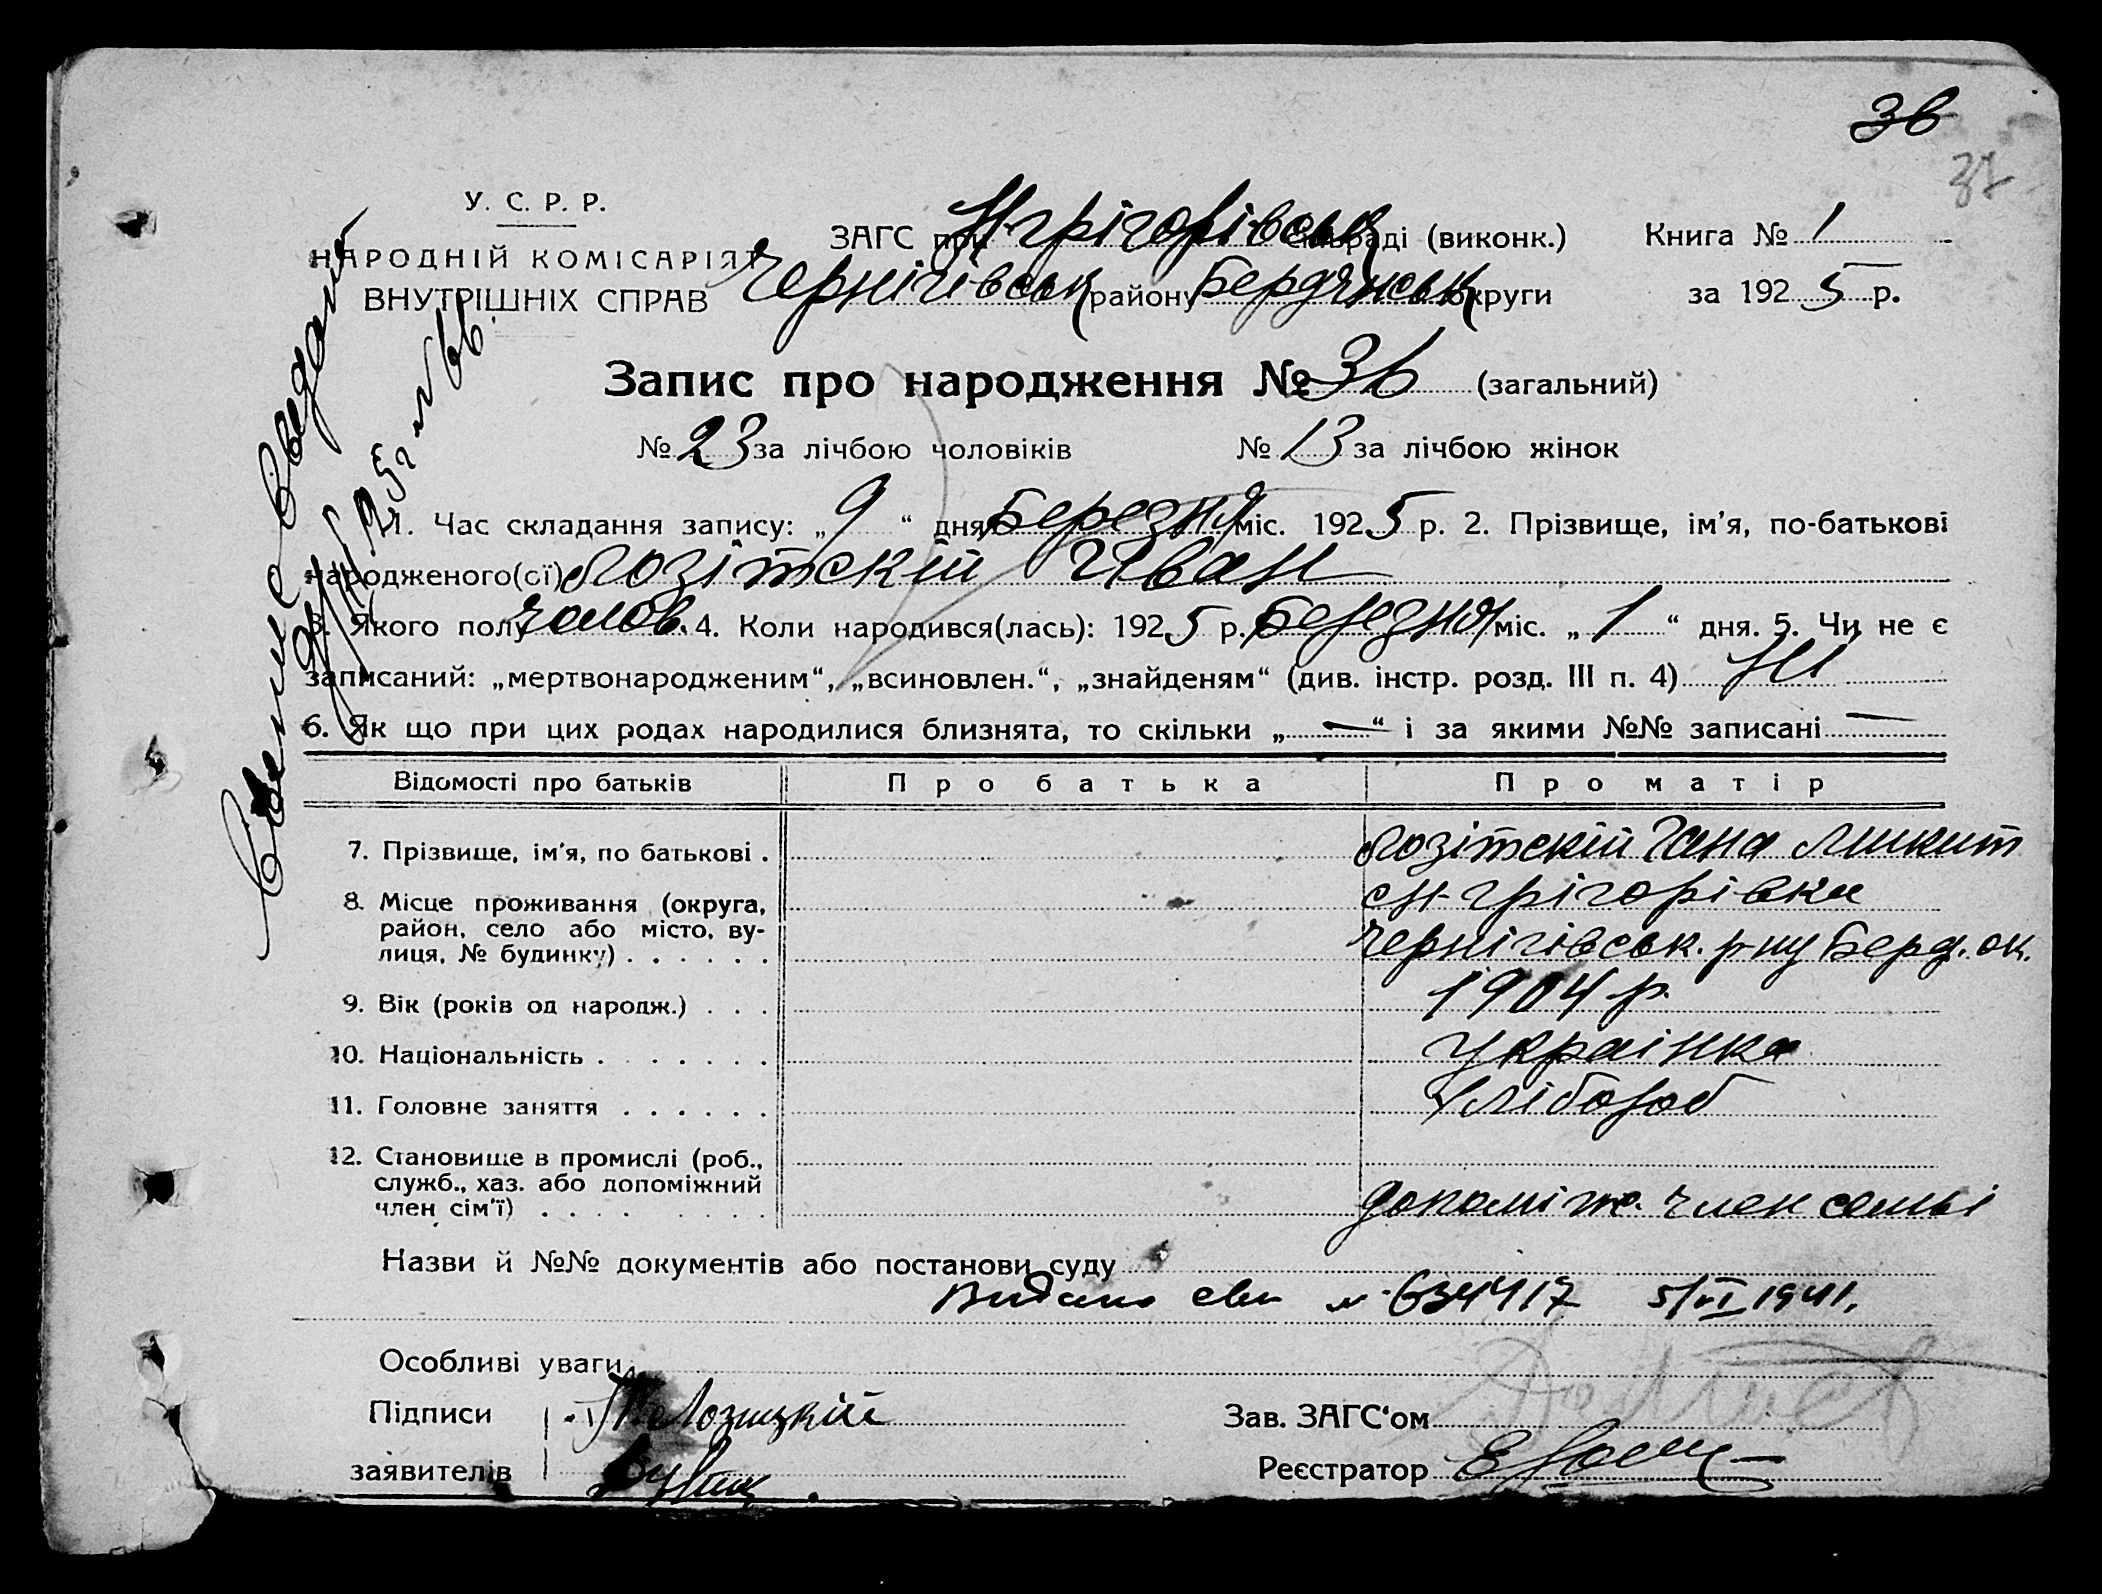 36
37
У. С. Р. Р.
НАРОДНІЙ КОМІСАРІЯТ
ВНУТРІШНІХ СПРАВ
ЗАГС при Н-Грігорівськ сільраді (виконк.)
Книга № 1
Чернігівськ району Бердянськ округи
за 1925 р.
Запис про народження № 36 (загальний)
№ 23 за лічбою чоловіків № 13 за лічбою жінок
1. Час складання запису: „9“ дня Березня міс. 1925 р. 2. Прізвище, ім'я, по-батькові
народженого(ої) Лозітскій Иван
3. Якого полу чолов. 4. Коли народився(лась): 1925 р. Березня міс. „1“ дня. 5. Чи не є
записаний: „мертвонародженим“, „всиновлен.“, „знайденям“ (див. інстр. розд. III п. 4) Ні
6. Як що при цих родах народилися близнята, то скільки „—“ і за якими №№ записані —
Відомості про батьків Про батька Про матір
7. Прізвище, ім'я, по батькові . Лозітскій Гана Микит
8. Місце проживання (округа, с Н-Грігорівка
район, село або місто, ву-
лиця, № будинку) . . . . . . Чернігівськ. р-ну Берд. ок.
9. Вік (років од народж.) . . . 1904 р.
10. Національність . . . . . . . українка
11. Головне заняття . . . . . . Хлібороб
12. Становище в промислі (роб.,
служб., хаз. або допоміжний
член сім'ї) . . . . . . . . допоміж. член семьі
Назви й №№ документів або постанови суду
Видано свид № 634417 5/VI 1941.
Особливі уваги
Підписи Лозицкій
заявителів
Зав. ЗАГС'ом
Реєстратор